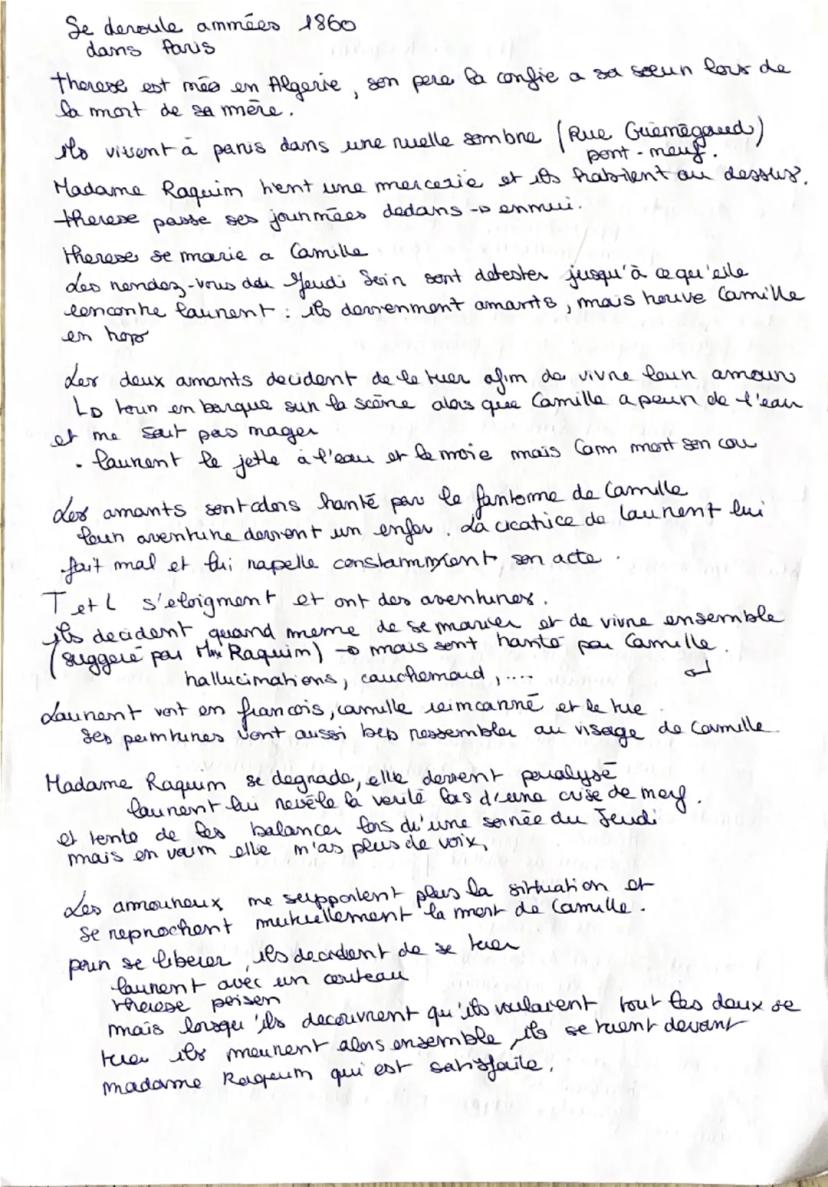 Se deroule années 1860
dans Paris
therese est née en Algerie, son pere la confie a sa soeur lors de
la mort de sa mère.
ils vivent à paris dans une ruelle sombre (Rue Guénégaud)
pont-neuf.
Madame Raquin tient une mercerie et ils habitent au dessus.
therese passe ses journées dedans → ennui.
therese se marie a Camille
Les rendez-vous du Jeudi Soir sont detester jusqu'à ce qu'elle
rencontre laurent : ils deviennent amants, mais trouve Camille
en trop
Les deux amants decident de le tuer afin de vivre leur amour
↳ tour en barque sur la seine alors que Camille a peur de l'eau
et ne sait pas nager
• laurent le jette à l'eau et le noie mais Cam mort son cou
Les amants sont alors hanté par le fantome de Camille
leur aventure devient un enfer. La cicatrice de laurent lui
fait mal et lui rapelle constamment son acte.
T et L s'eloignent et ont des aventures.
ils decident quand meme de se marier et de vivre ensemble
(suggeré par Mme Raquin) → mais sont hanté par Camille.
hallucinations, cauchemard, ....
Laurent voit en francois, camille reincarné et le tue.
Ses peintures vont aussi ressembler au visage de Camille
Madame Raquin se degrade, elle devient paralysé
laurent lui revèle la verité lors d'une crise de nerf.
et tente de les balancer lors d'une soirée du Jeudi
mais en vain elle n'as plus de voix,
Les amoureux ne supportent plus la situation et
se reprochent mutuellement la mort de Camille.
pour se liberer, ils decident de se tuer
laurent avec un couteau
therese poison
mais lorsqu'ils decouvrent qu'ils voulaient tout les deux se
tuer ils meurent alors ensemble, ils se tuent devant
madame Raquin qui est satisfaite.